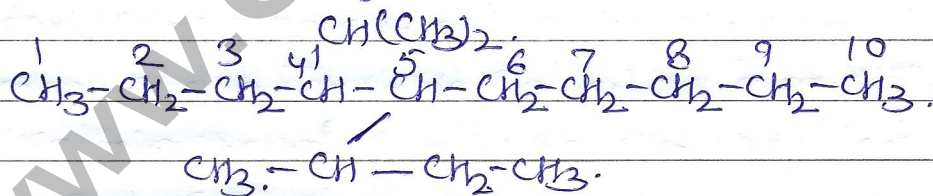 CH(CH3)2.
1 2 3 4 5 6 7 8 9 10
CH3-CH2-CH2-CH-CH-CH2-CH2-CH2-CH2-CH3.
CH3.-CH-CH2-CH3.